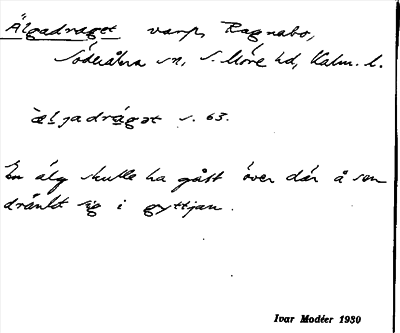 Älgadraget varp, Ragnabo,
Söderåkra sn, S. Möre hd, Kalm. l.
æ̀ljadrágət s. 63.
En älg skulle ha gått över där å sen
dränkt sig i gyttjan.
Ivar Modéer 1930